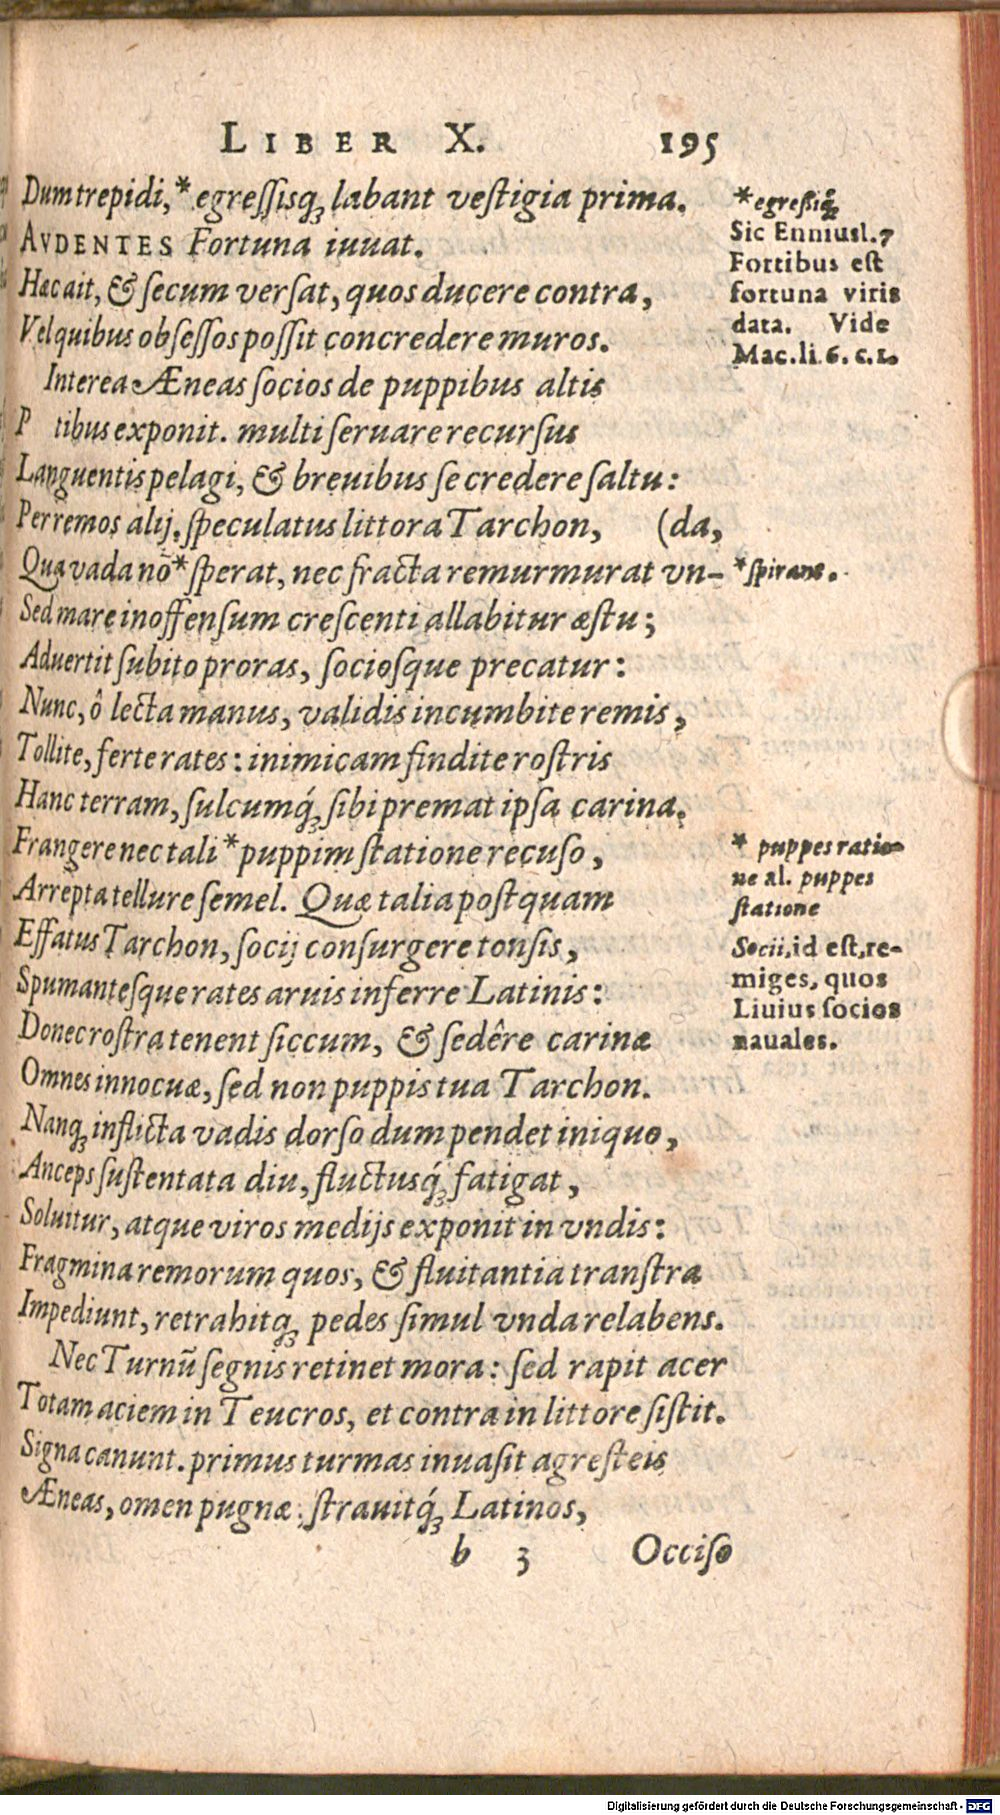 LIBER X. 195
Dum trepidi,* egreſſisq́ꝫ labant veſtigia prima.
AVDENTES Fortuna iuuat.
Hæc ait, & ſecum verſat, quos ducere contra,
Vel quibus obſeſſos poſſit concredere muros.
Interea Æneas ſocios de puppibus altis
P tibus exponit. multi ſeruare recurſus
Languentis pelagi, & breuibus ſe credere ſaltu:
Per remos alij. ſpeculatus littora Tarchon, (da,
Qua vada nō* ſperat, nec fracta remurmurat vn-
Sed mare inoffenſum creſcenti allabitur æſtu;
Aduertit ſubito proras, ſociosque precatur:
Nunc, ô lecta manus, validis incumbite remis,
Tollite, ferte rates: inimicam findite roſtris
Hanc terram, ſulcumq́ꝫ ſibi premat ipſa carina.
Frangere nec tali* puppim ſtatione recuſo,
Arrepta tellure ſemel. Quæ talia poſtquam
Effatus Tarchon, ſocij conſurgere tonſis,
Spumantesque rates aruis inferre Latinis:
Donec roſtra tenent ſiccum, & ſedêre carinæ
Omnes innocuæ, ſed non puppis tua Tarchon.
Nanqꝫ inflicta vadis dorſo dum pendet iniquo,
Anceps ſuſtentata diu, fluctusq́ꝫ fatigat,
Soluitur, atque viros medijs exponit in vndis:
Fragmina remorum quos, & fluitantia tranſtra
Impediunt, retrahitqꝫ pedes ſimul vnda relabens.
Nec Turnū ſegnis retinet mora: ſed rapit acer
Totam aciem in Teucros, et contra in littore ſiſtit.
Signa canunt. primus turmas inuaſit agreſteis
Æneas, omen pugnæ: ſtrauitq́ꝫ Latinos,
b 3 Occiſo
*egreſſiqꝫ
Sic Ennius l. 7
Fortibus eſt
fortuna viris
data. Vide
Mac. li. 6. c. 1.
*ſpirant.
* puppes ratio-
ne al. puppes
ſtatione
Socii, id eſt, re-
miges, quos
Liuius ſocios
nauales.
Digitalisierung gefördert durch die Deutsche Forschungsgemeinschaft - DFG